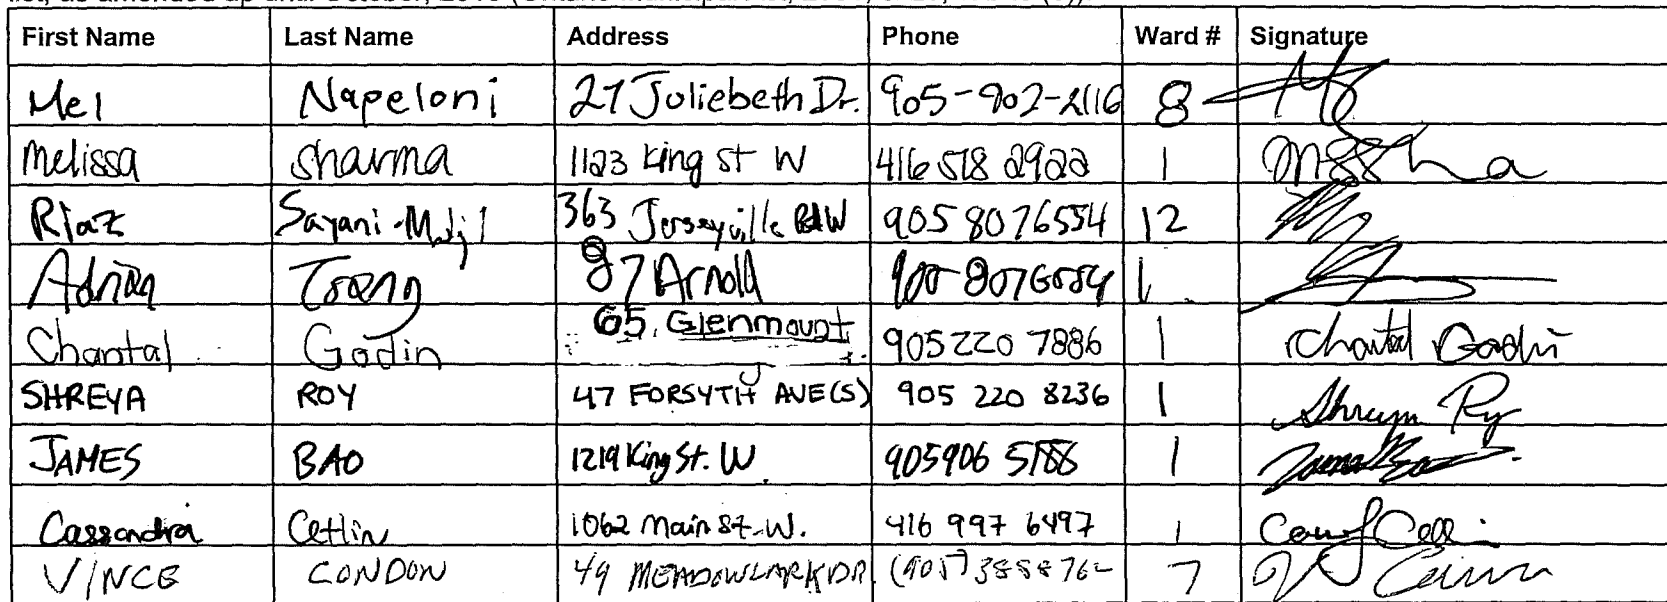 First Name Last Name Address Phone Ward # Signature
Mel Napeloni 27 Juliebeth Dr. 905-902-2116 8
Melissa Sharma 1123 King st W 416 518 2922 1
Riaz Sayani-Mulji 363 Jerseyville Rd W 905 8076554 12
Adrian Tsang 87 Arnold 905 8076554 1
Chantal Godin 65 Glenmount 905 220 7886 1 Chantal Godin
SHREYA ROY 47 FORSYTH AVE(S) 905 220 8236 1 Shreya Roy
JAMES BAO 1219 King St. W 905906 5188 1
Cassandra Cetlin 1062 Main St. W. 416 997 6497 1
VINCE CONDON 49 MEADOWLARK DR (905) 3888762 7